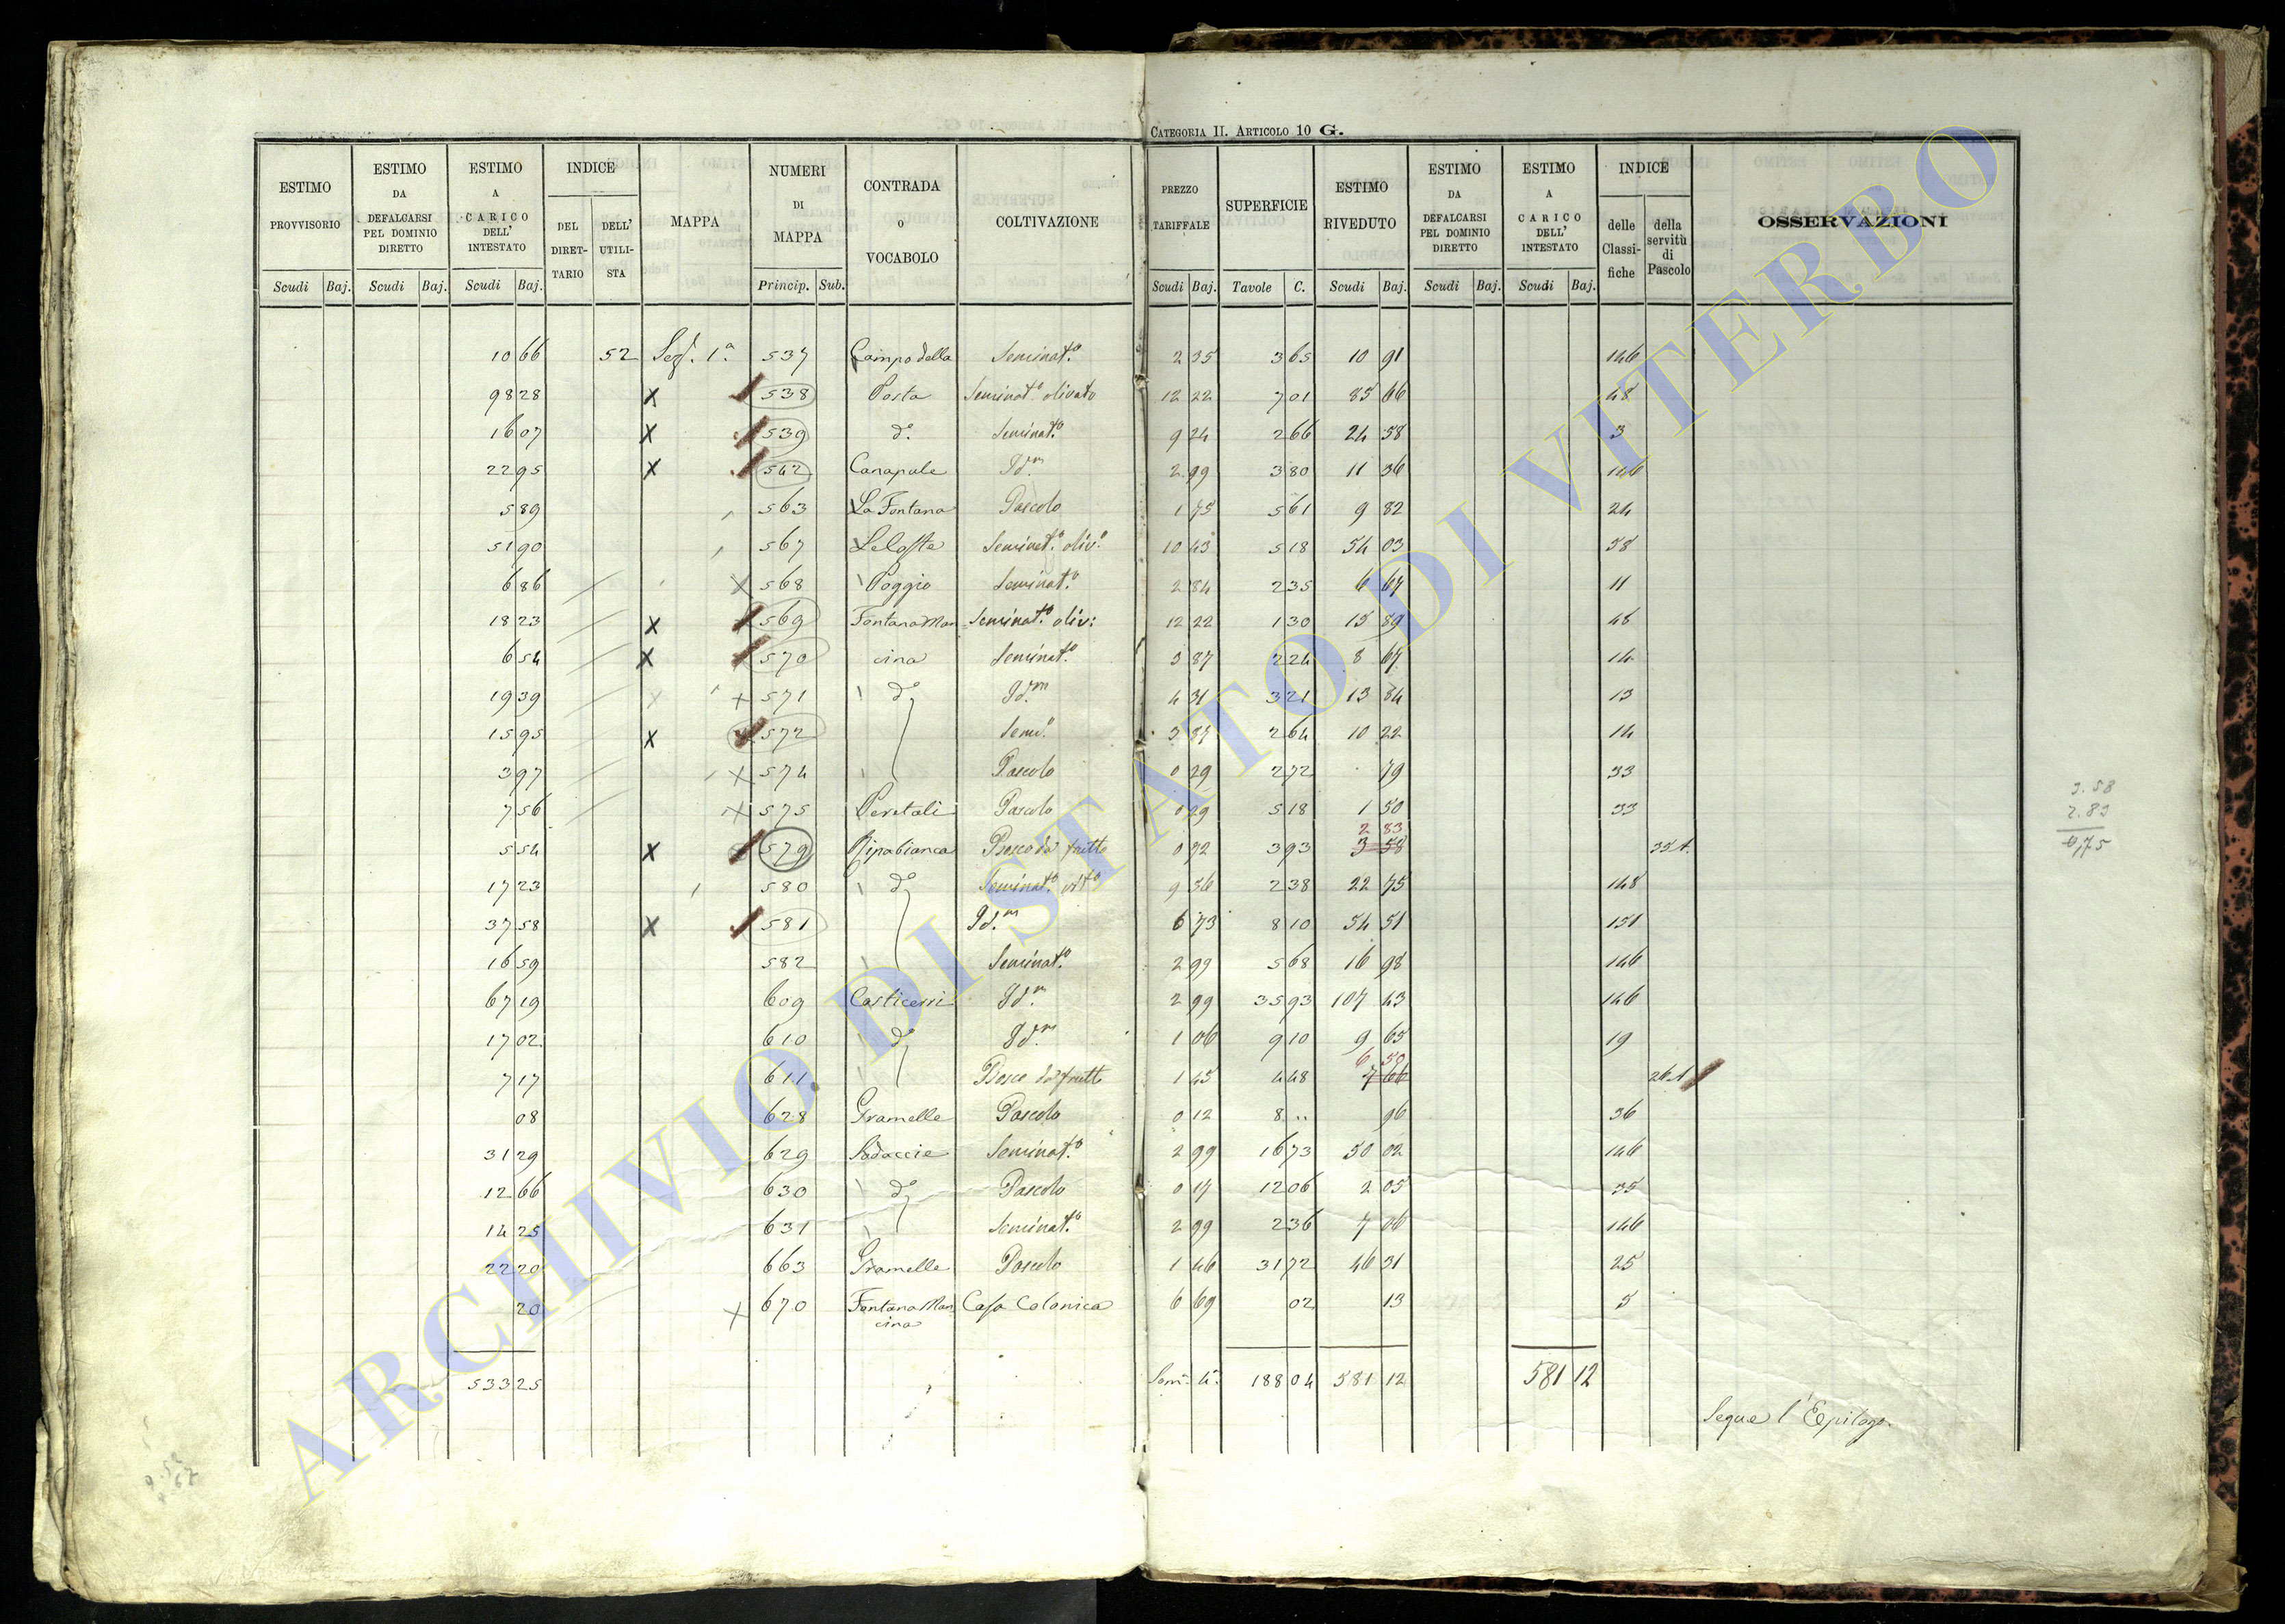 CATEGORIA II. ARTICOLO 10 G.
ESTIMO PROVVISORIO | ESTIMO DA DEFALCARSI PEL DOMINIO DIRETTO | ESTIMO A CARICO DELL' INTESTATO | INDICE DEL DIRETTARIO | DELL' UTILISTA | MAPPA | NUMERI DI MAPPA | CONTRADA o VOCABOLO | COLTIVAZIONE | PREZZO TARIFFALE | SUPERFICIE | ESTIMO RIVEDUTO | ESTIMO DA DEFALCARSI PEL DOMINIO DIRETTO | ESTIMO A CARICO DELL' INTESTATO | INDICE delle Classifiche | della servitù di Pascolo | OSSERVAZIONI
Scudi Baj. | Scudi Baj. | Scudi Baj. | Princip. Sub. | Scudi Baj. | Tavole C. | Scudi Baj. | Scudi Baj. | Scudi Baj.
10 66 52 Sez. 1a. 537 Campo della Seminat.o 2 35 3 65 10 91 146
98 28 X 538 Posta Seminat.o olivato 12 22 7 01 85 66 48
16 07 X 539 d.o Seminat.o 9 24 2 66 24 58 3
22 95 X 542 Canapule Id.m 2 99 3 80 11 36 146
5 89 563 La Fontana Pascolo 1 75 5 61 9 82 24
51 90 567 Le Coste Seminat.o oliv.o 10 43 5 18 54 03 58
6 86 X 568 Poggio Seminat.o 2 84 2 35 6 67 11
18 23 X 569 Fontana Man Seminat.o oliv: 12 22 1 30 15 89 48
6 54 X 570 cina Seminat.o 3 87 2 24 8 67 14
19 39 X + 571 d.o Id.m 4 31 3 21 13 84 13
15 95 X 572 Sem.o 3 87 2 64 10 22 14
3 97 X 574 Pascolo 0 29 2 72 79 33
7 56 X 575 Peretali Pascolo 0 29 5 18 1 50 33
2 83
5 54 X 579 Ripabianca Bosco da frutto 0 72 3 93 3 58 35 1.
17 23 580 d.o Seminat.o vit.o 9 56 2 38 22 75 148
37 58 X 581 Id.m 6 73 8 10 54 51 151
16 59 582 Seminat.o 2 99 5 68 16 98 146
67 19 609 Casticerri Id.m 2 99 35 93 107 43 146
17 02 610 d.o Id.m 1 06 9 10 9 65 19
6 50
7 17 611 Bosco da frutto 1 45 4 48 7 66 26 1
08 628 Gramelle Pascolo 0 12 8 .. 96 36
31 29 629 Sodaccie Seminat.o 2 99 16 73 50 02 146
12 66 630 d.o Pascolo 0 17 12 06 2 05 35
14 25 631 Seminat.o 2 99 2 36 7 06 146
22 20 663 Gramelle Pascolo 1 46 31 72 46 31 25
20 X 670 Fontana Man Casa Colonica 6 69 02 13 5
cina
533 25 Som.a 4.a 188 04 581 12 581 12
Segue l'Epilogo.
3.58
2.83
0,75